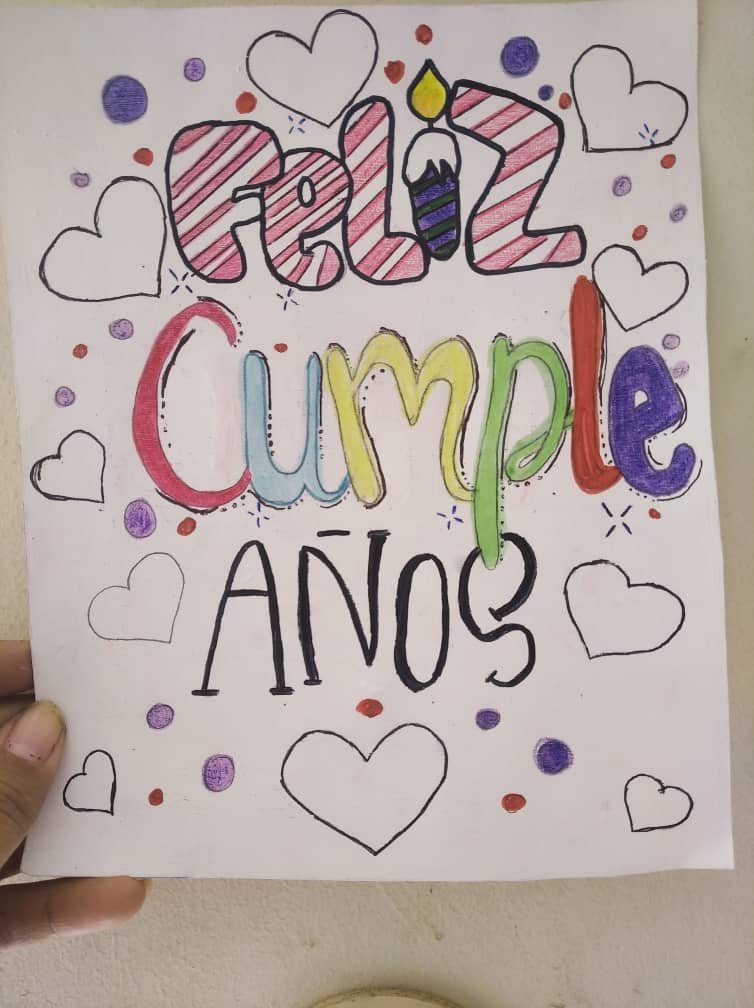 Feliz
Cumple
AÑOS